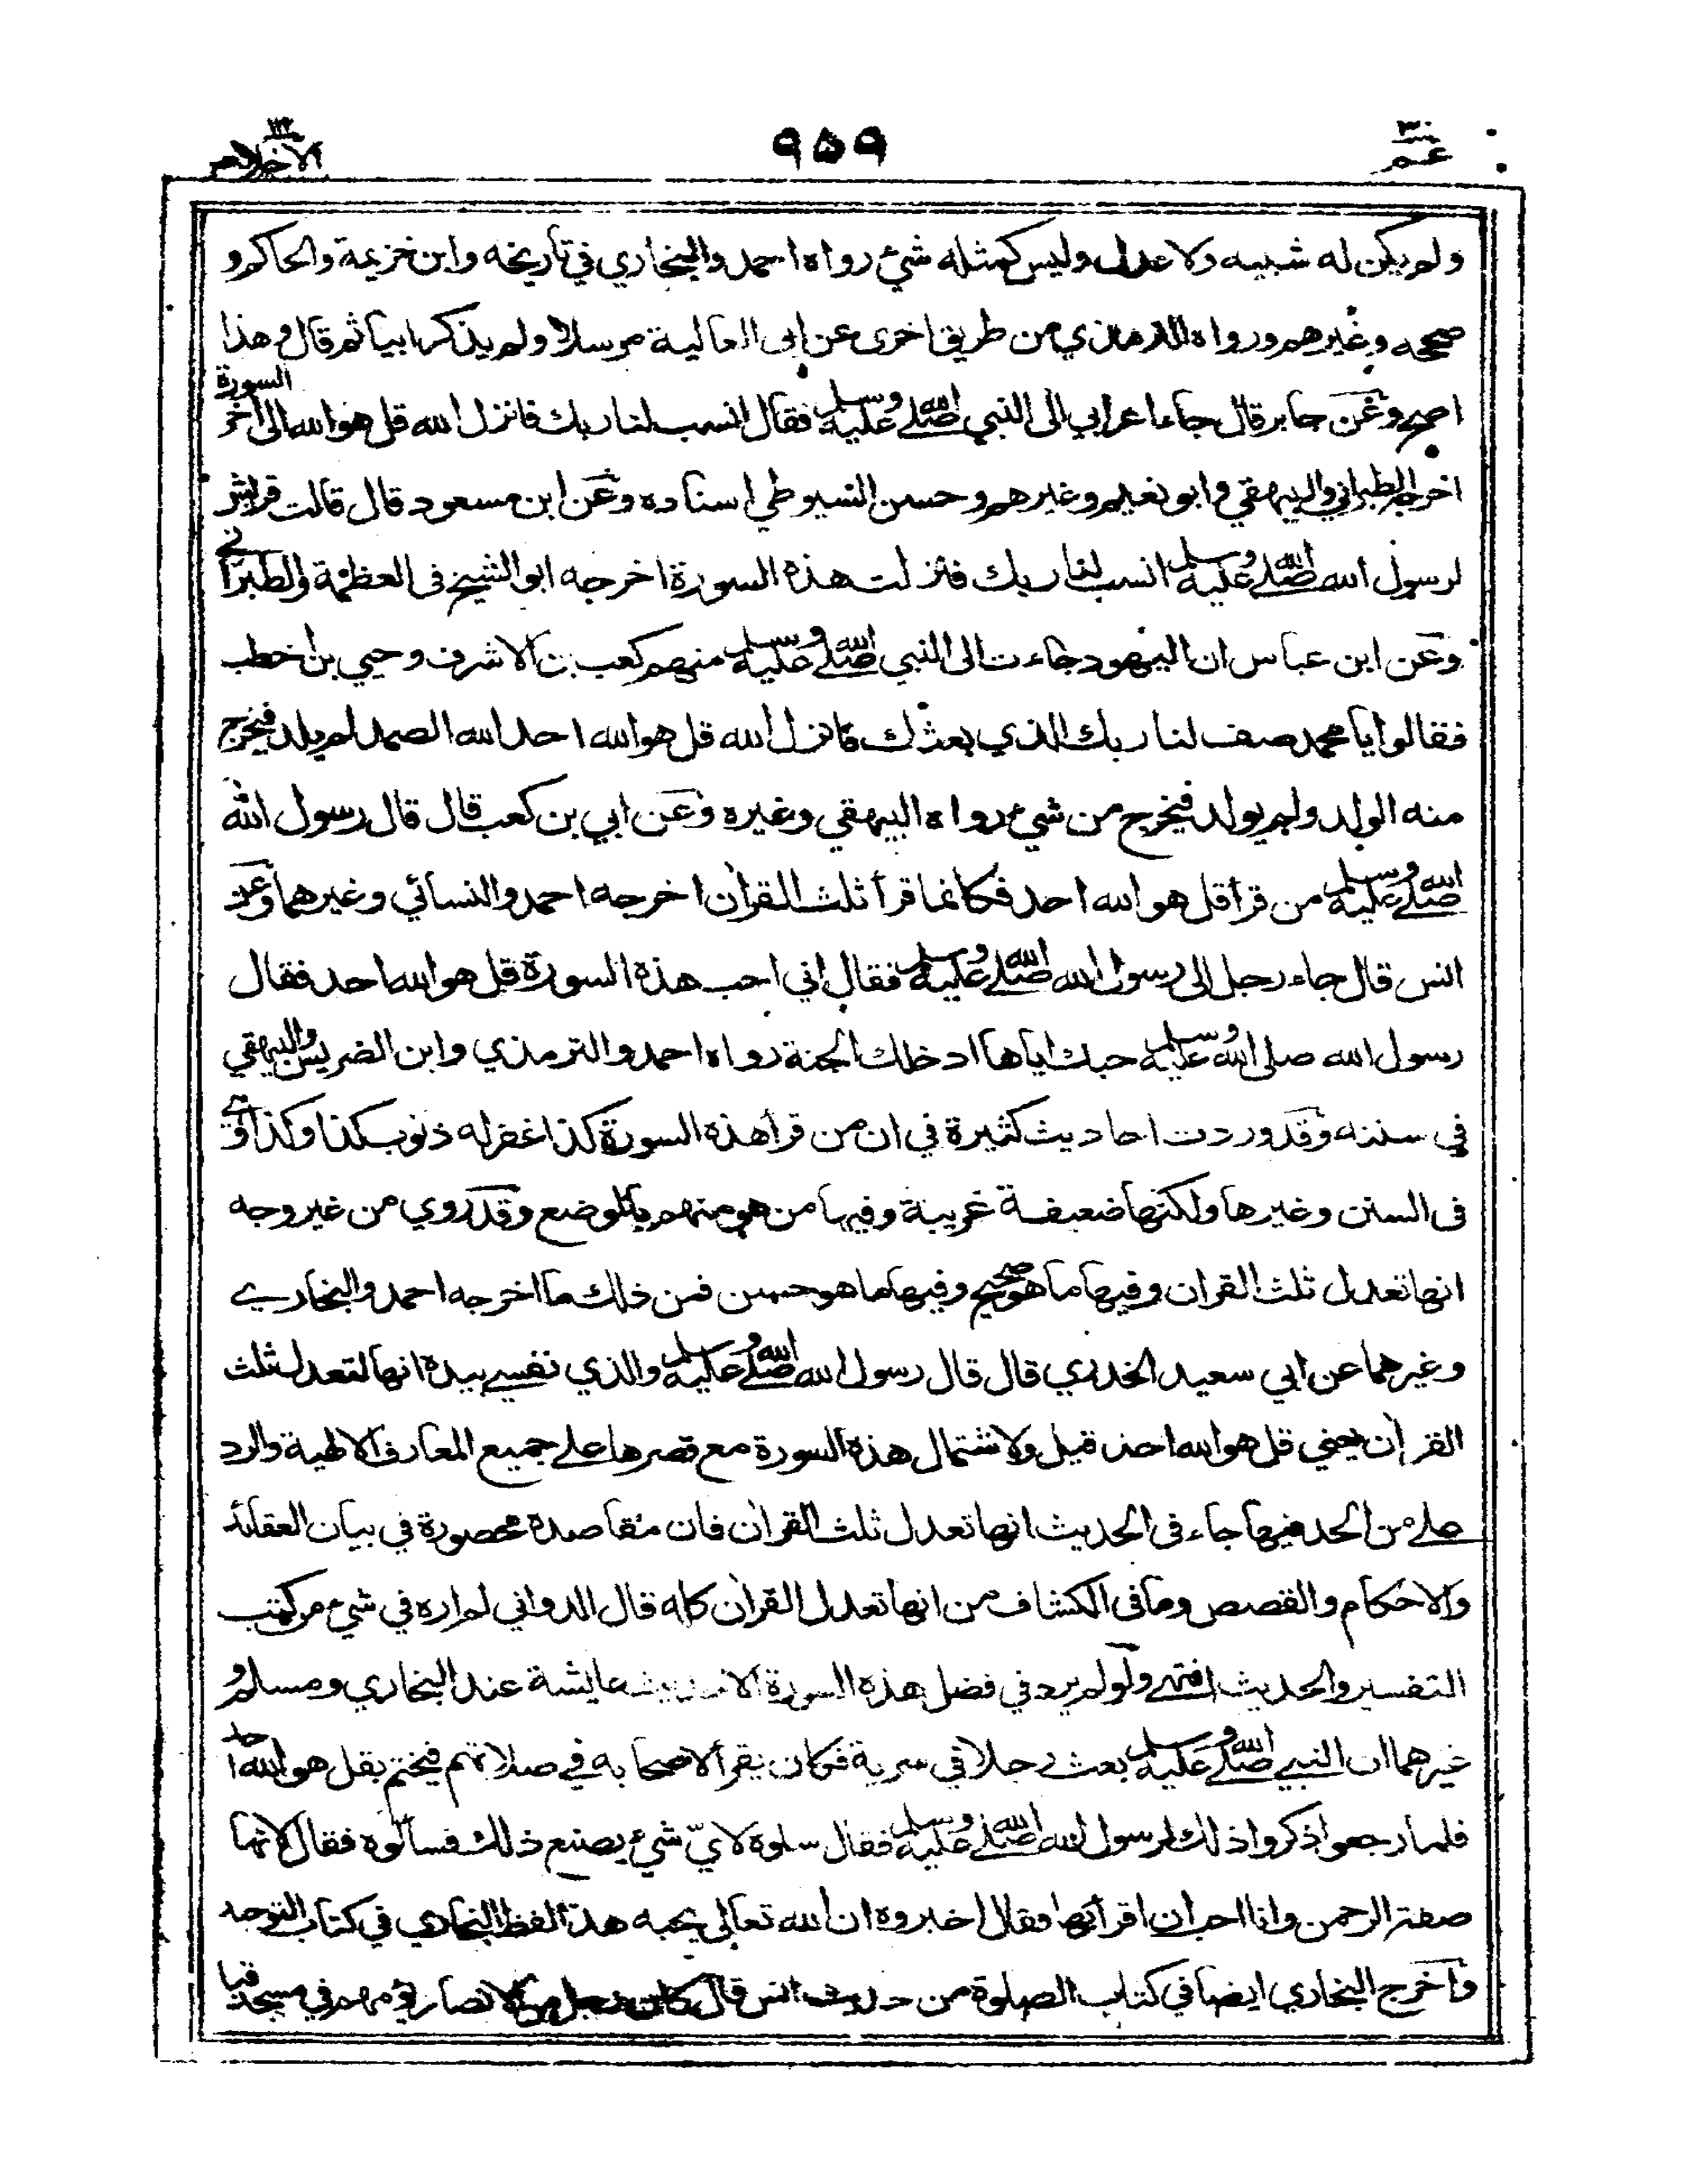 ٣٠
عم
٩٥٩
١١٢
الاخلاص
ولم يكن له شبيه ولا عدل وليس كمثله شئ رواه احمد والبخاري في تاريخه وابن خزيمة والحاكم و
صححه وغيرهم ورواه الترمذي من طريق اخرى عن ابى العالية مرسلا ولم يذكر ابيا ثم قال وهذا
اصح وعن جابر قال جاء اعرابي الى النبي صلى الله عليه وسلم فقال انسب لنا ربك فانزل الله قل هو الله الى اخر السورة
اخرجه الطبراني والبيهقي وابو نعيم وغيرهم وحسن السيوطي اسناده وعن ابن مسعود قال قالت قريش
لرسول الله صلى الله عليه وسلم انسب لنا ربك فنزلت هذه السورة اخرجه ابو الشيخ فى العظمة والطبراني
وعن ابن عباس ان اليهود جاءت الى النبي صلى الله عليه وسلم منهم كعب بن الاشرف وحيي بن اخطب
فقالوا يا محمد صف لنا ربك الذي بعثك فانزل الله قل هو الله احد الله الصمد لم يلد فيخرج
منه الولد ولم يولد فيخرج من شيء رواه البيهقي وغيره وعن ابي بن كعب قال قال رسول الله
صلى الله عليه وسلم من قرأ قل هو الله احد فكانما قرأ ثلث القرأن اخرجه احمد والنسائي وغيرهما وعن
انس قال جاء رجل الى رسول الله صلى الله عليه وسلم فقال اني احب هذه السورة قل هو الله احد فقال
رسول الله صلى الله عليه وسلم حبك اياها ادخلك الجنة رواه احمد والترمذي وابن الضريس والبيهقي
في سننه وقد وردت احاديث كثيرة في ان من قرأ هذه السورة كذا غفر له ذنوب كذا وكذا وهي
فى السنن وغيرها ولكنها ضعيفة غريبة وفيها من هو متهم بالوضع وقد روي من غير وجه
انها تعدل ثلث القران وفيها ما هو صحيح وفيها ما هو حسن فمن ذلك ما اخرجه احمد والبخاري
وغيرهما عن ابي سعيد الخدري قال قال رسول الله صلى الله عليه وسلم والذي نفسي بيده انها لتعدل ثلث
القرأن يعني قل هو الله احد قيل ولاشتمال هذه السورة مع قصرها على جميع المعارف الالهية والرد
على من الحد فيها جاء فى الحديث انها تعدل ثلث القرأن فان مقاصده محصورة في بيان العقائد
والاحكام والقصص وما فى الكشاف من انها تعدل القرأن كله قال الدواني لم اره في شيء من كتب
التفسير والحديث انتهى ولو لم يرد في فضل هذه السورة الا حديث عايشة عند البخاري ومسلم و
غيرهما ان النبي صلى الله عليه وسلم بعث رجلا في سرية فكان يقرأ لاصحابه في صلاتهم فيختم بقل هو الله احد
فلما رجعوا ذكروا ذلك لرسول الله صلى الله عليه وسلم فقال سلوه لايّ شيء يصنع ذلك فسألوه فقال لانها
صفة الرحمن وانا احب ان اقرأ بها فقال اخبروه ان الله تعالى يحبه هذا لفظ البخاري في كتاب التوحيد
واخرج البخاري ايضا في كتاب الصلوة من حديث انس قال كان رجل من الانصار يؤمهم في مسجد قبا